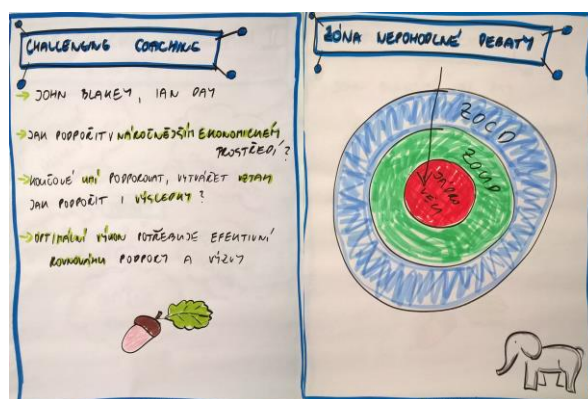 CHALLENGING COACHING
→ JOHN BLAKEY, IAN DAY
→ JAK PODPOŘIT V NÁROČNĚJŠÍM EKONOMICKÉM
PROSTŘEDÍ?
→ KOUČOVÉ UMÍ PODPOROVAT, VYTVÁŘET VZTAH
JAK PODPOŘIT I VÝSLEDKY?
→ OPTIMÁLNÍ VÝKON POTŘEBUJE EFEKTIVNÍ
ROVNOVÁHU PODPORY A VÝZVY
ZÓNA NEPOHODLNÉ DEBATY
ZOCD
ZOUD
JÁDRO
VĚCI